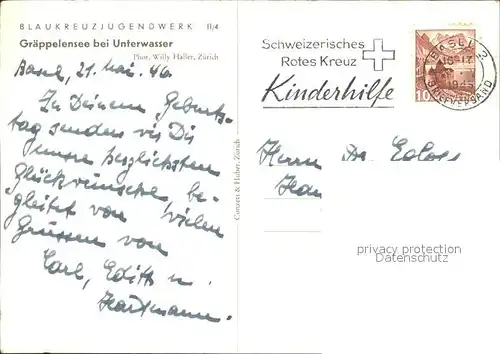 BLAUKREUZJUGENDWERK II/4
Gräppelensee bei Unterwasser
Phot. Willy Haller, Zürich
Basel, 21. Mai. 46.
Zu Deinem Geburts-
tag senden wir Dir
unsere herzlichsten
Glückwünsche be-
gleitet von vielen
Grüssen von
Carl, Edith u.
Hartmann.
Conzett & Huber, Zürich
Schweizerisches
Rotes Kreuz
Kinderhilfe
BASEL 2
BRIEFVERSAND
10
Herrn Dr.
privacy protection
Datenschutz